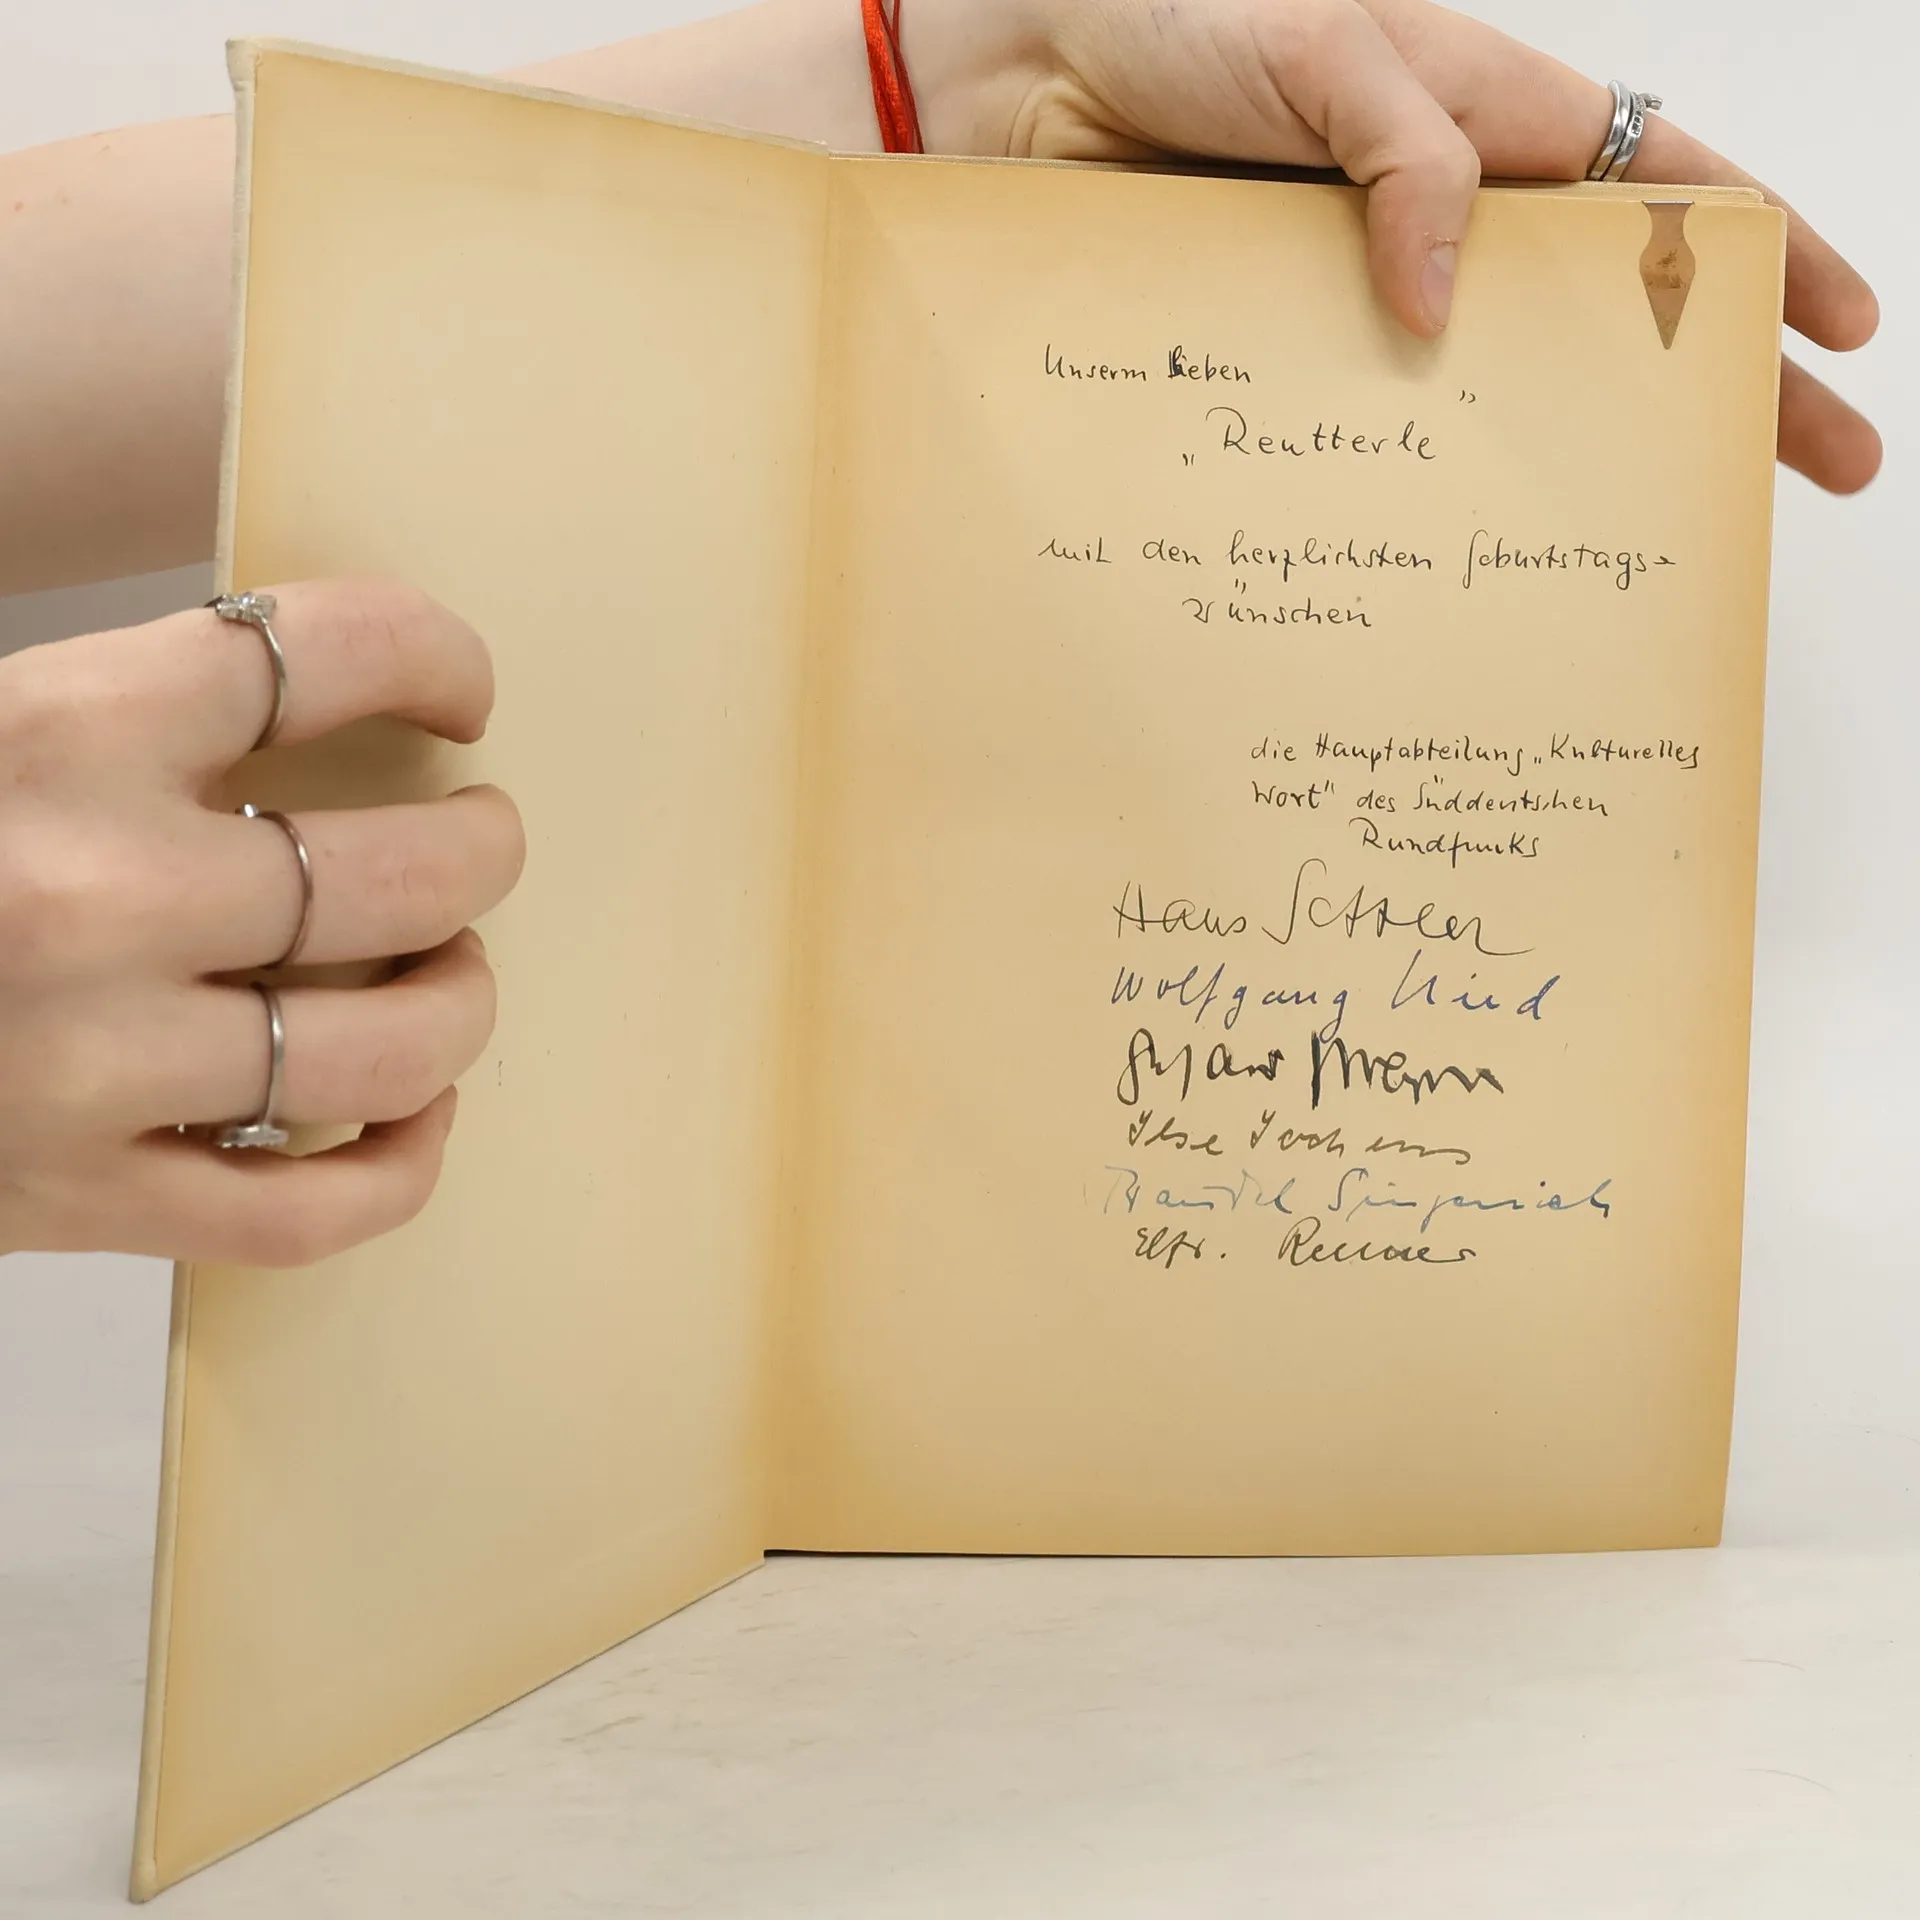 Unserm lieben
„Reutterle"
mit den herzlichsten Geburtstags-
wünschen
die Hauptabteilung „Kulturelles
Wort" des Süddeutschen
Rundfunks
Hans
Wolfgang
Ilse Jochems
Elfr.